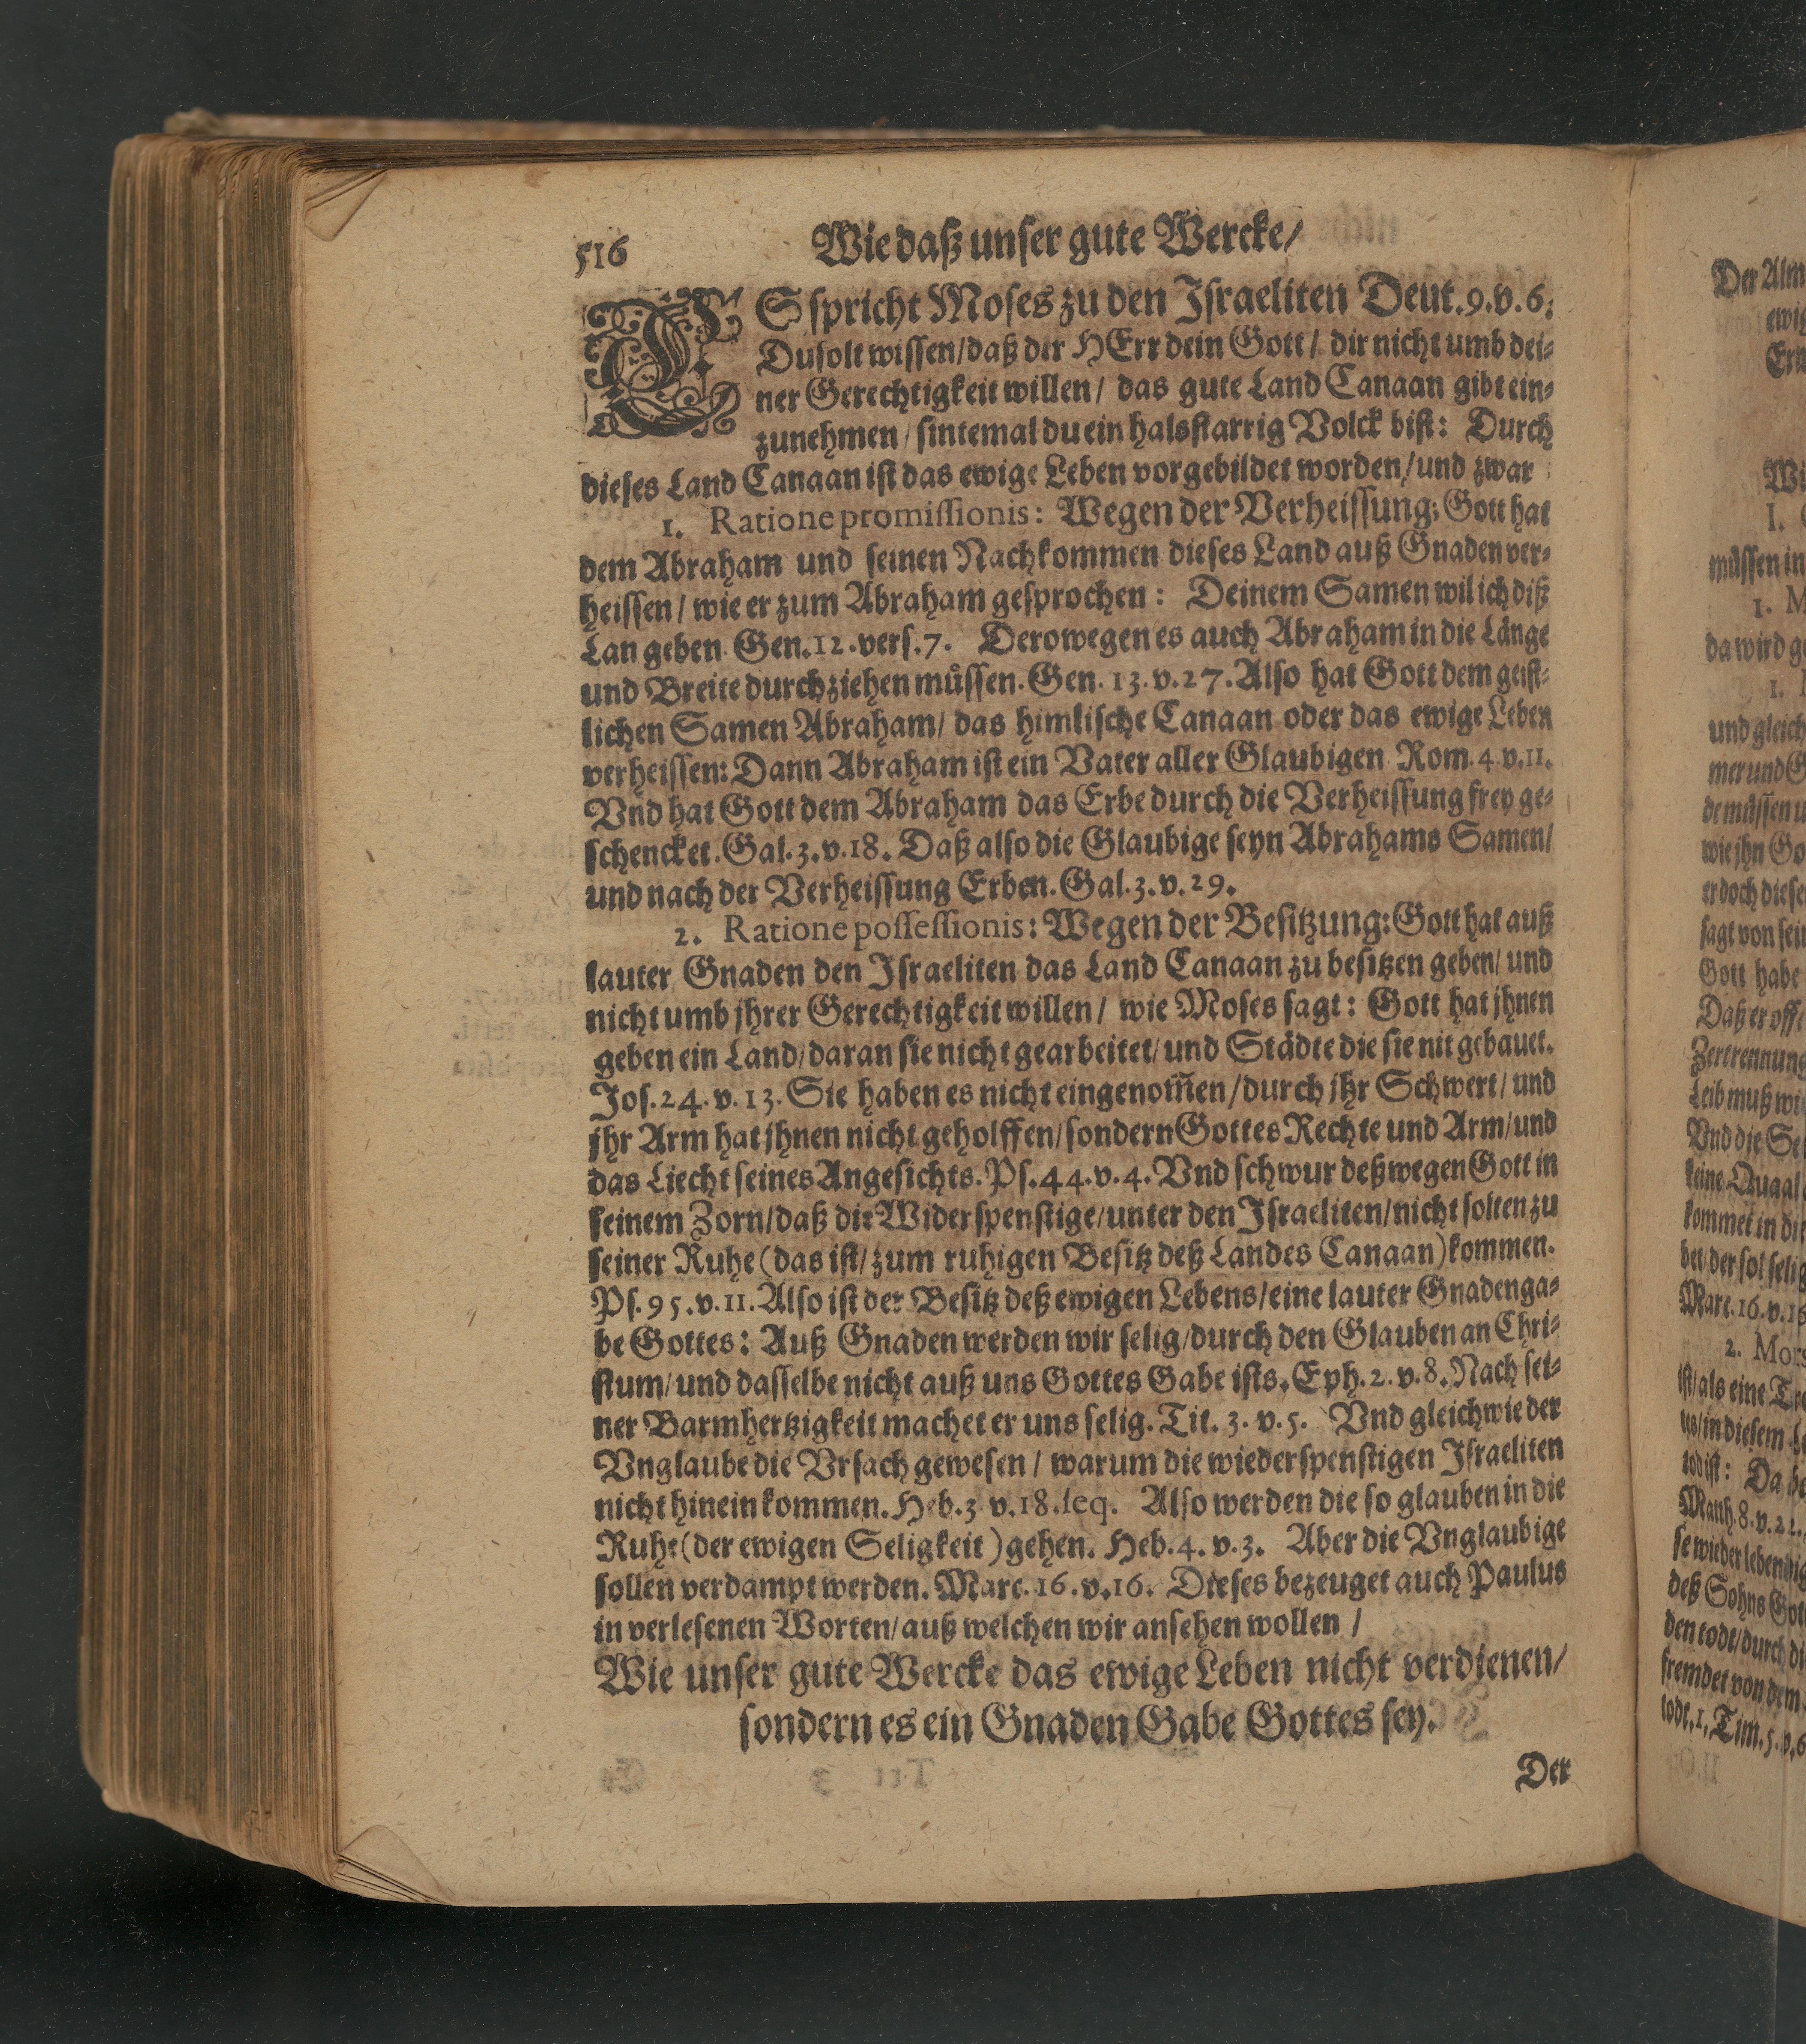 516 Wie daß unser gute Wercke/
ES spricht Moses zu den Israeliten Deut. 9. v. 6.
Du solt wissen/ daß der HErr dein Gott/ dir nicht umb dei-
ner Gerechtigkeit willen/ das gute Land Canaan gibt ein-
zunehmen/ sintemal du ein halsstarrig Volck bist: Durch
dieses Land Canaan ist das ewige Leben vorgebildet worden/ und zwar
1. Ratione promissionis: Wegen der Verheissung; Gott hat
dem Abraham und seinen Nachkommen dieses Land auß Gnaden ver-
heissen/ wie er zum Abraham gesprochen: Deinem Samen wil ich diß
Lan geben. Gen. 12. vers. 7. Derowegen es auch Abraham in die Länge
und Breite durchziehen müssen. Gen. 13. v. 27. Also hat Gott dem geist-
lichen Samen Abraham/ das himlische Canaan oder das ewige Leben
verheissen: Dann Abraham ist ein Vater aller Glaubigen Rom. 4. v. 11.
Vnd hat Gott dem Abraham das Erbe durch die Verheissung frey ge-
schencket. Gal. 3. v. 18. Daß also die Glaubige seyn Abrahams Samen/
und nach der Verheissung Erben. Gal. 3. v. 29.
2. Ratione possessionis: Wegen der Besitzung: Gott hat auß
lauter Gnaden den Israeliten das Land Canaan zu besitzen geben/ und
nicht umb jhrer Gerechtigkeit willen/ wie Moses sagt: Gott hat jhnen
geben ein Land/ daran sie nicht gearbeitet/ und Städte die sie nit gebauet.
Jos. 24. v. 13. Sie haben es nicht eingenom̄en/ durch jhr Schwert/ und
jhr Arm hat jhnen nicht geholffen/ sondern Gottes Rechte und Arm/ und
das Liecht seines Angesichts. Ps. 44. v. 4. Vnd schwur deßwegen Gott in
seinem Zorn/ daß die Widerspenstige/ unter den Israeliten/ nicht solten zu
seiner Ruhe (das ist/ zum ruhigen Besitz deß Landes Canaan) kommen.
Ps. 95. v. 11. Also ist der Besitz deß ewigen Lebens/ eine lauter Gnadenga-
be Gottes: Auß Gnaden werden wir selig/ durch den Glauben an Chri-
stum/ und dasselbe nicht auß uns Gottes Gabe ists. Eph. 2. v. 8. Nach sei-
ner Barmhertzigkeit machet er uns selig. Tit. 3. v. 5. Vnd gleich wie der
Vnglaube die Vrsach gewesen/ warum die wiederspenstigen Israeliten
nicht hinein kommen. Heb. 3. v. 18. seq. Also werden die so glauben in die
Ruhe (der ewigen Seligkeit) gehen. Heb. 4. v. 3. Aber die Vnglaubige
sollen verdampt werden. Marc. 16. v. 16. Dieses bezeuget auch Paulus
in verlesenen Worten/ auß welchen wir ansehen wollen/
Wie unser gute Wercke das ewige Leben nicht verdienen/
sondern es ein Gnaden Gabe Gottes sey.
Der